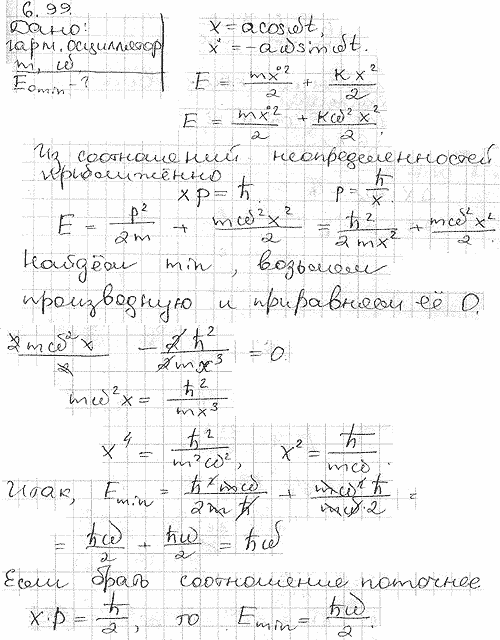 6.99
Дано:
гарм. осциллятор
m, ω
E₀min - ?
x = a cos ωt,
ẋ = -aω sin ωt.
E = mẋ²/2 + Kx²/2
E = mẋ²/2 + Kω²x²/2.
Из соотношений неопределенностей
приближённо
xp = ħ.   p = ħ/x.
E = p²/2m + mω²x²/2 = ħ²/2mx² + mω²x²/2.
Найдём min, возьмем
производную и приравняем её 0.
2mω²x/2 - 2ħ²/2mx³ = 0
mω²x = ħ²/mx³
x⁴ = ħ²/m²ω²,   x² = ħ/mω.
Итак, Emin = ħ²mω/2mħ + mω²ħ/mω·2 =
= ħω/2 + ħω/2 = ħω
Если брать соотношение поточнее
x·p = ħ/2, то Emin = ħω/2.